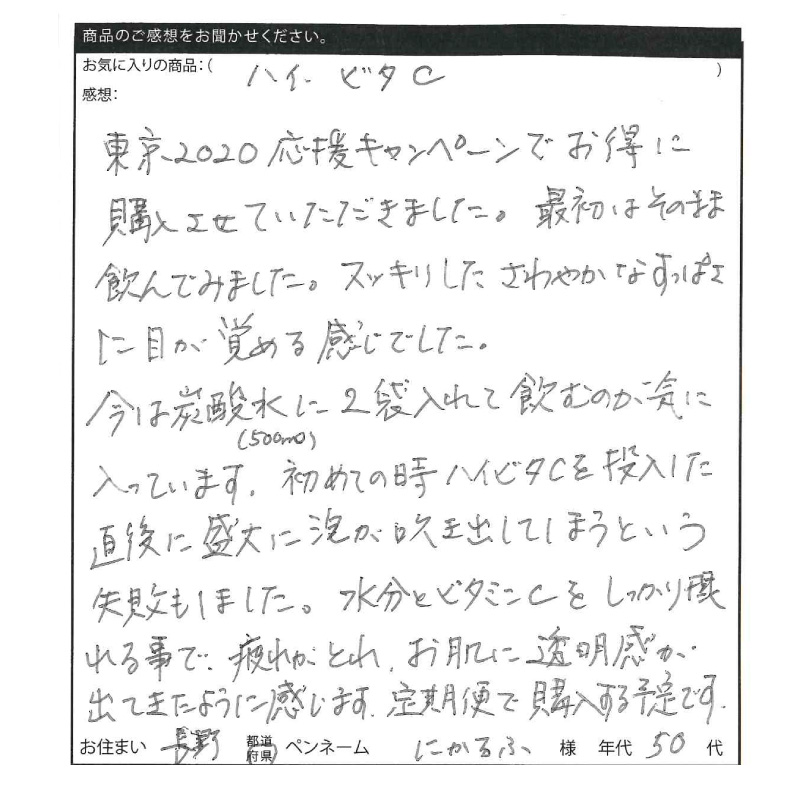 商品のご感想をお聞かせください。
お気に入りの商品:( ハイ・ビタC )
感想:
東京2020応援キャンペーンでお得に
購入させていただきました。最初はそのまま
飲んでみました。スッキリしたさわやかなすっぱさ
に目が覚める感じでした。
今は炭酸水に2袋入れて飲むのが気に
(500ml)
入っています。初めての時ハイビタCを投入した
直後に盛大に泡が吹き出してしまうという
失敗もしました。水分とビタミンCをしっかり摂
れる事で、疲れがとれ、お肌に透明感が
出てきたように感じます。定期便で購入する予定です。
お住まい 長野 都道府県 ペンネーム にかるふ 様 年代 50 代